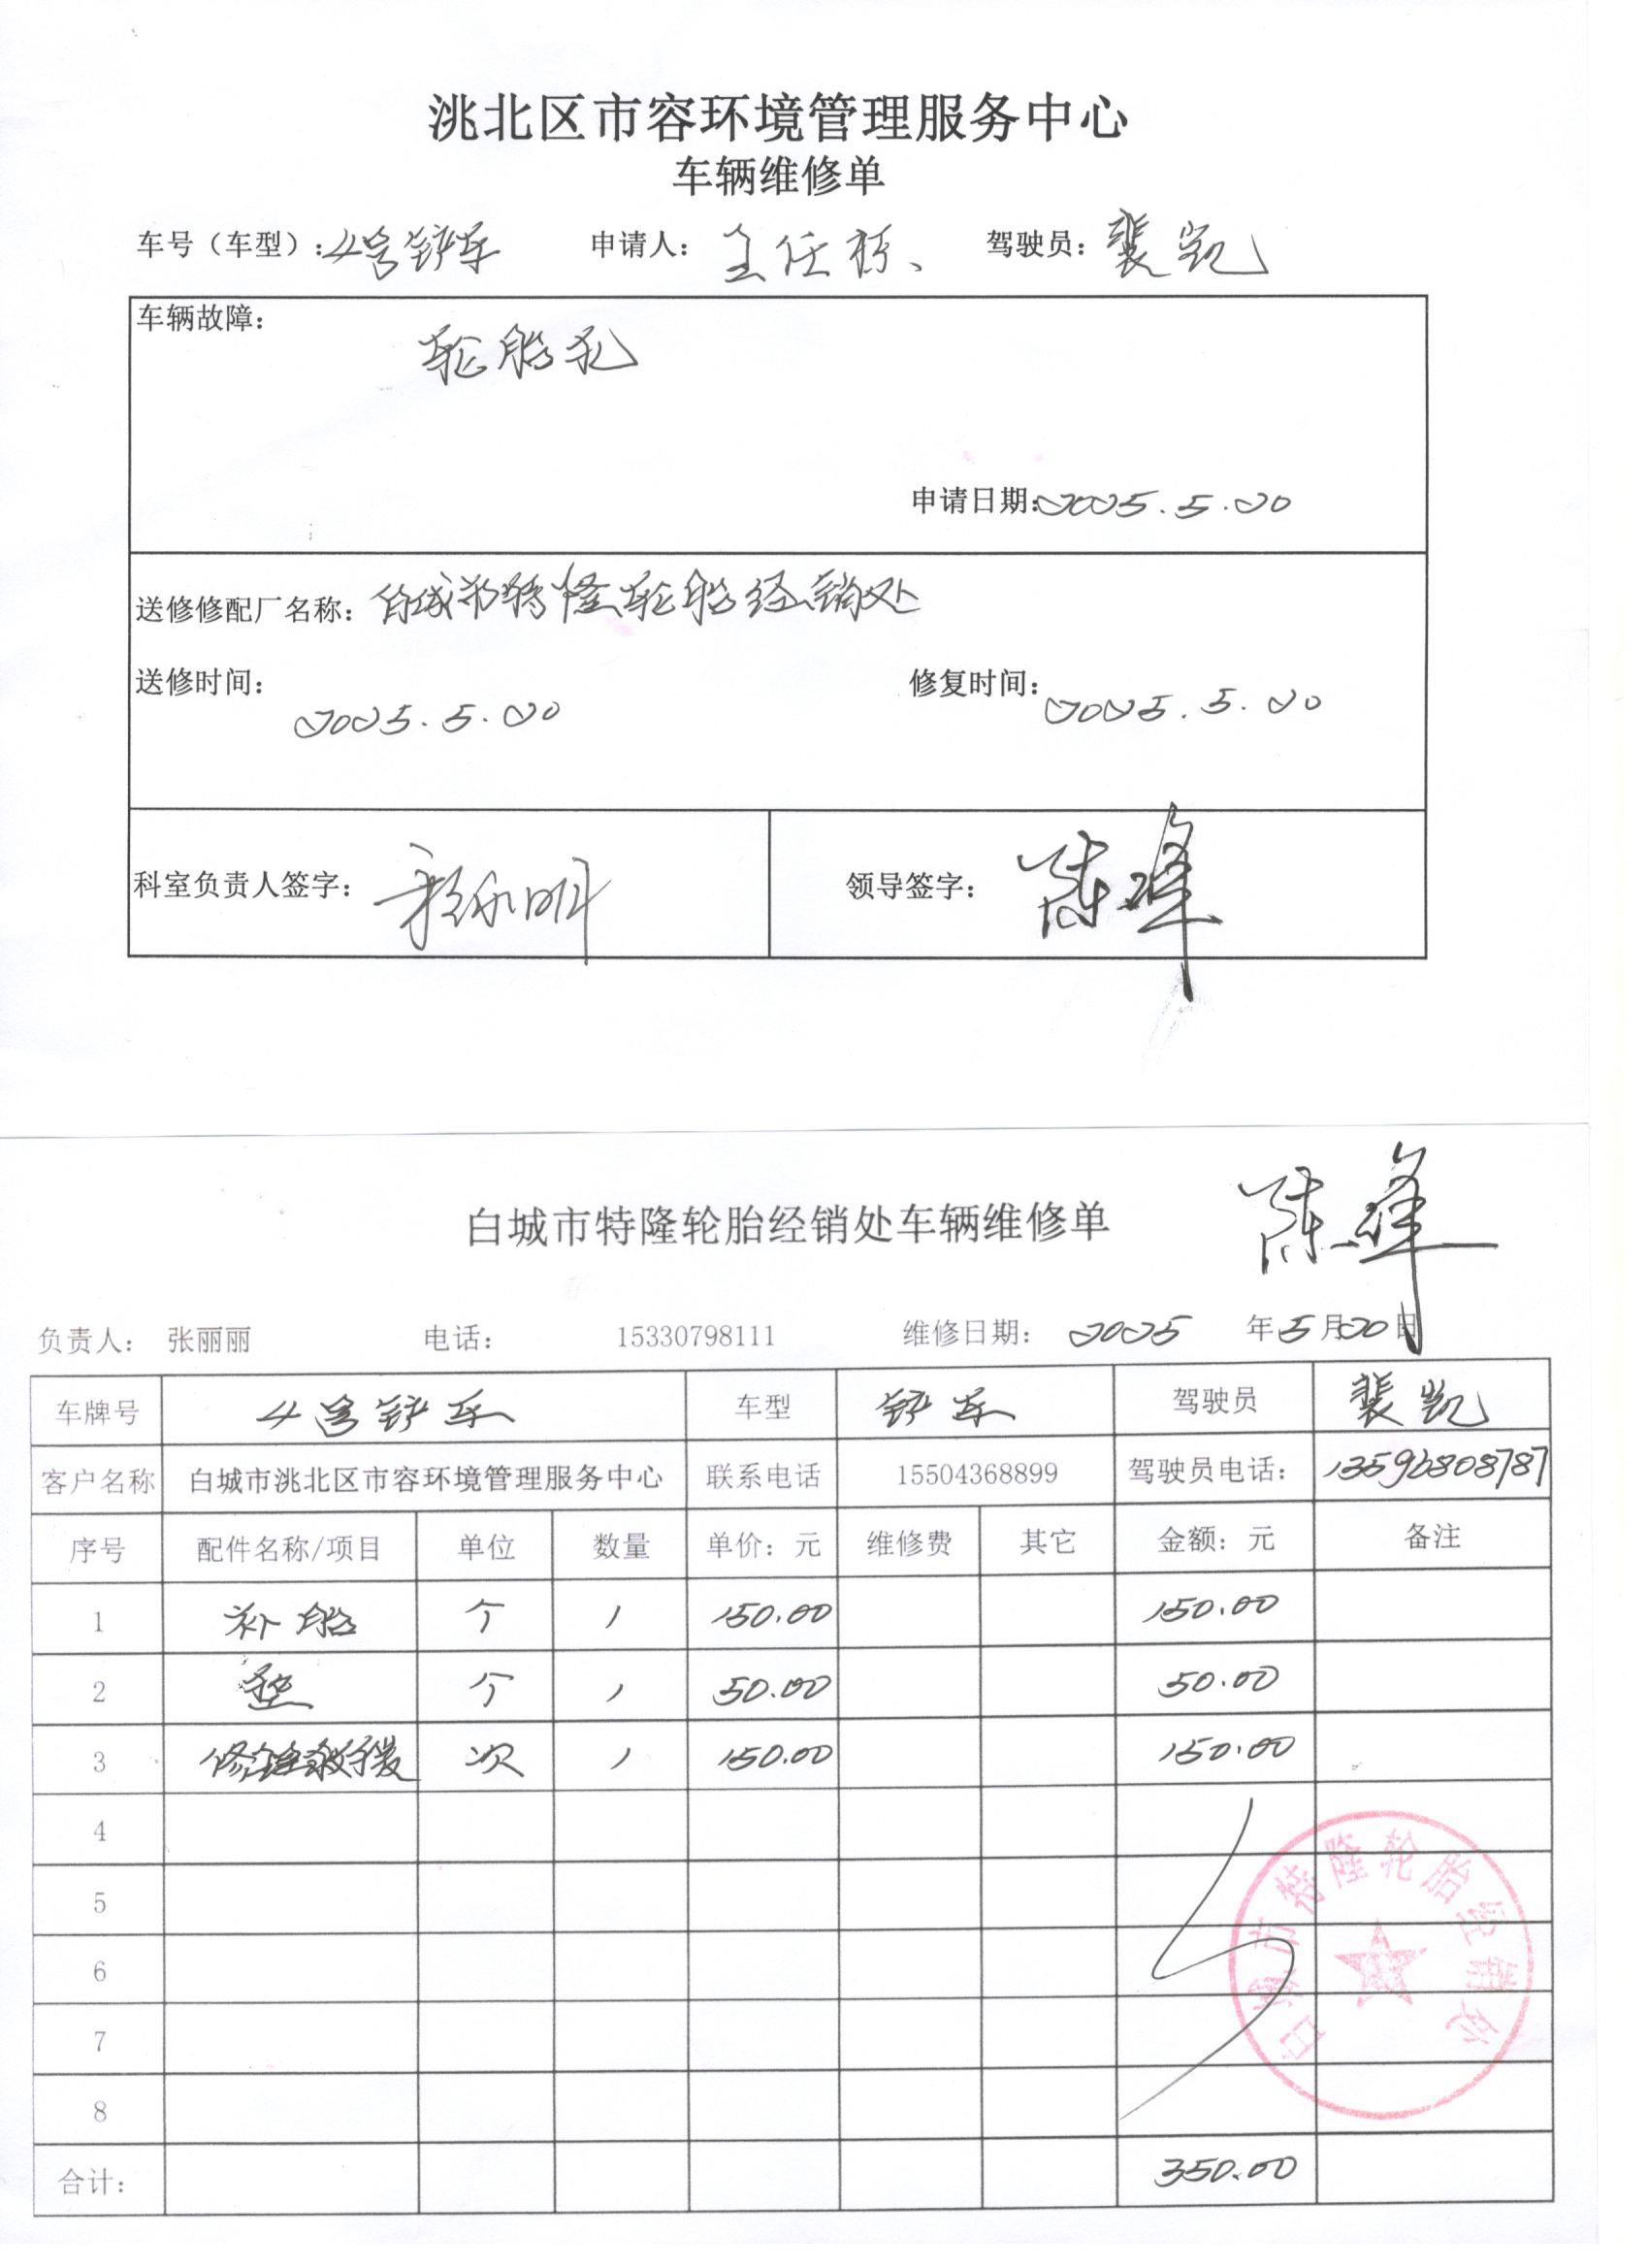 洮北区市容环境管理服务中心
车辆维修单
车号（车型）:4号铲车 申请人: 驾驶员: 裴凯
车辆故障:
轮胎扎
申请日期:2025.5.20
送修修配厂名称: 白城市特隆轮胎经销处
送修时间: 2025.5.20 修复时间: 2025.5.20
科室负责人签字: 领导签字: 陈峰
白城市特隆轮胎经销处车辆维修单 陈峰
负责人: 张丽丽 电话: 15330798111 维修日期: 2025 年5月20日
车牌号 4号铲车 车型 铲车 驾驶员 裴凯
客户名称 白城市洮北区市容环境管理服务中心 联系电话 15504368899 驾驶员电话:
序号 配件名称/项目 单位 数量 单价: 元 维修费 其它 金额: 元 备注
1 补胎 个 1 150.00 150.00
2 垫 个 1 50.00 50.00
3 次 1 150.00 150.00
4
5
6
7
8
合计: 350.00
白城市特隆轮胎经销处